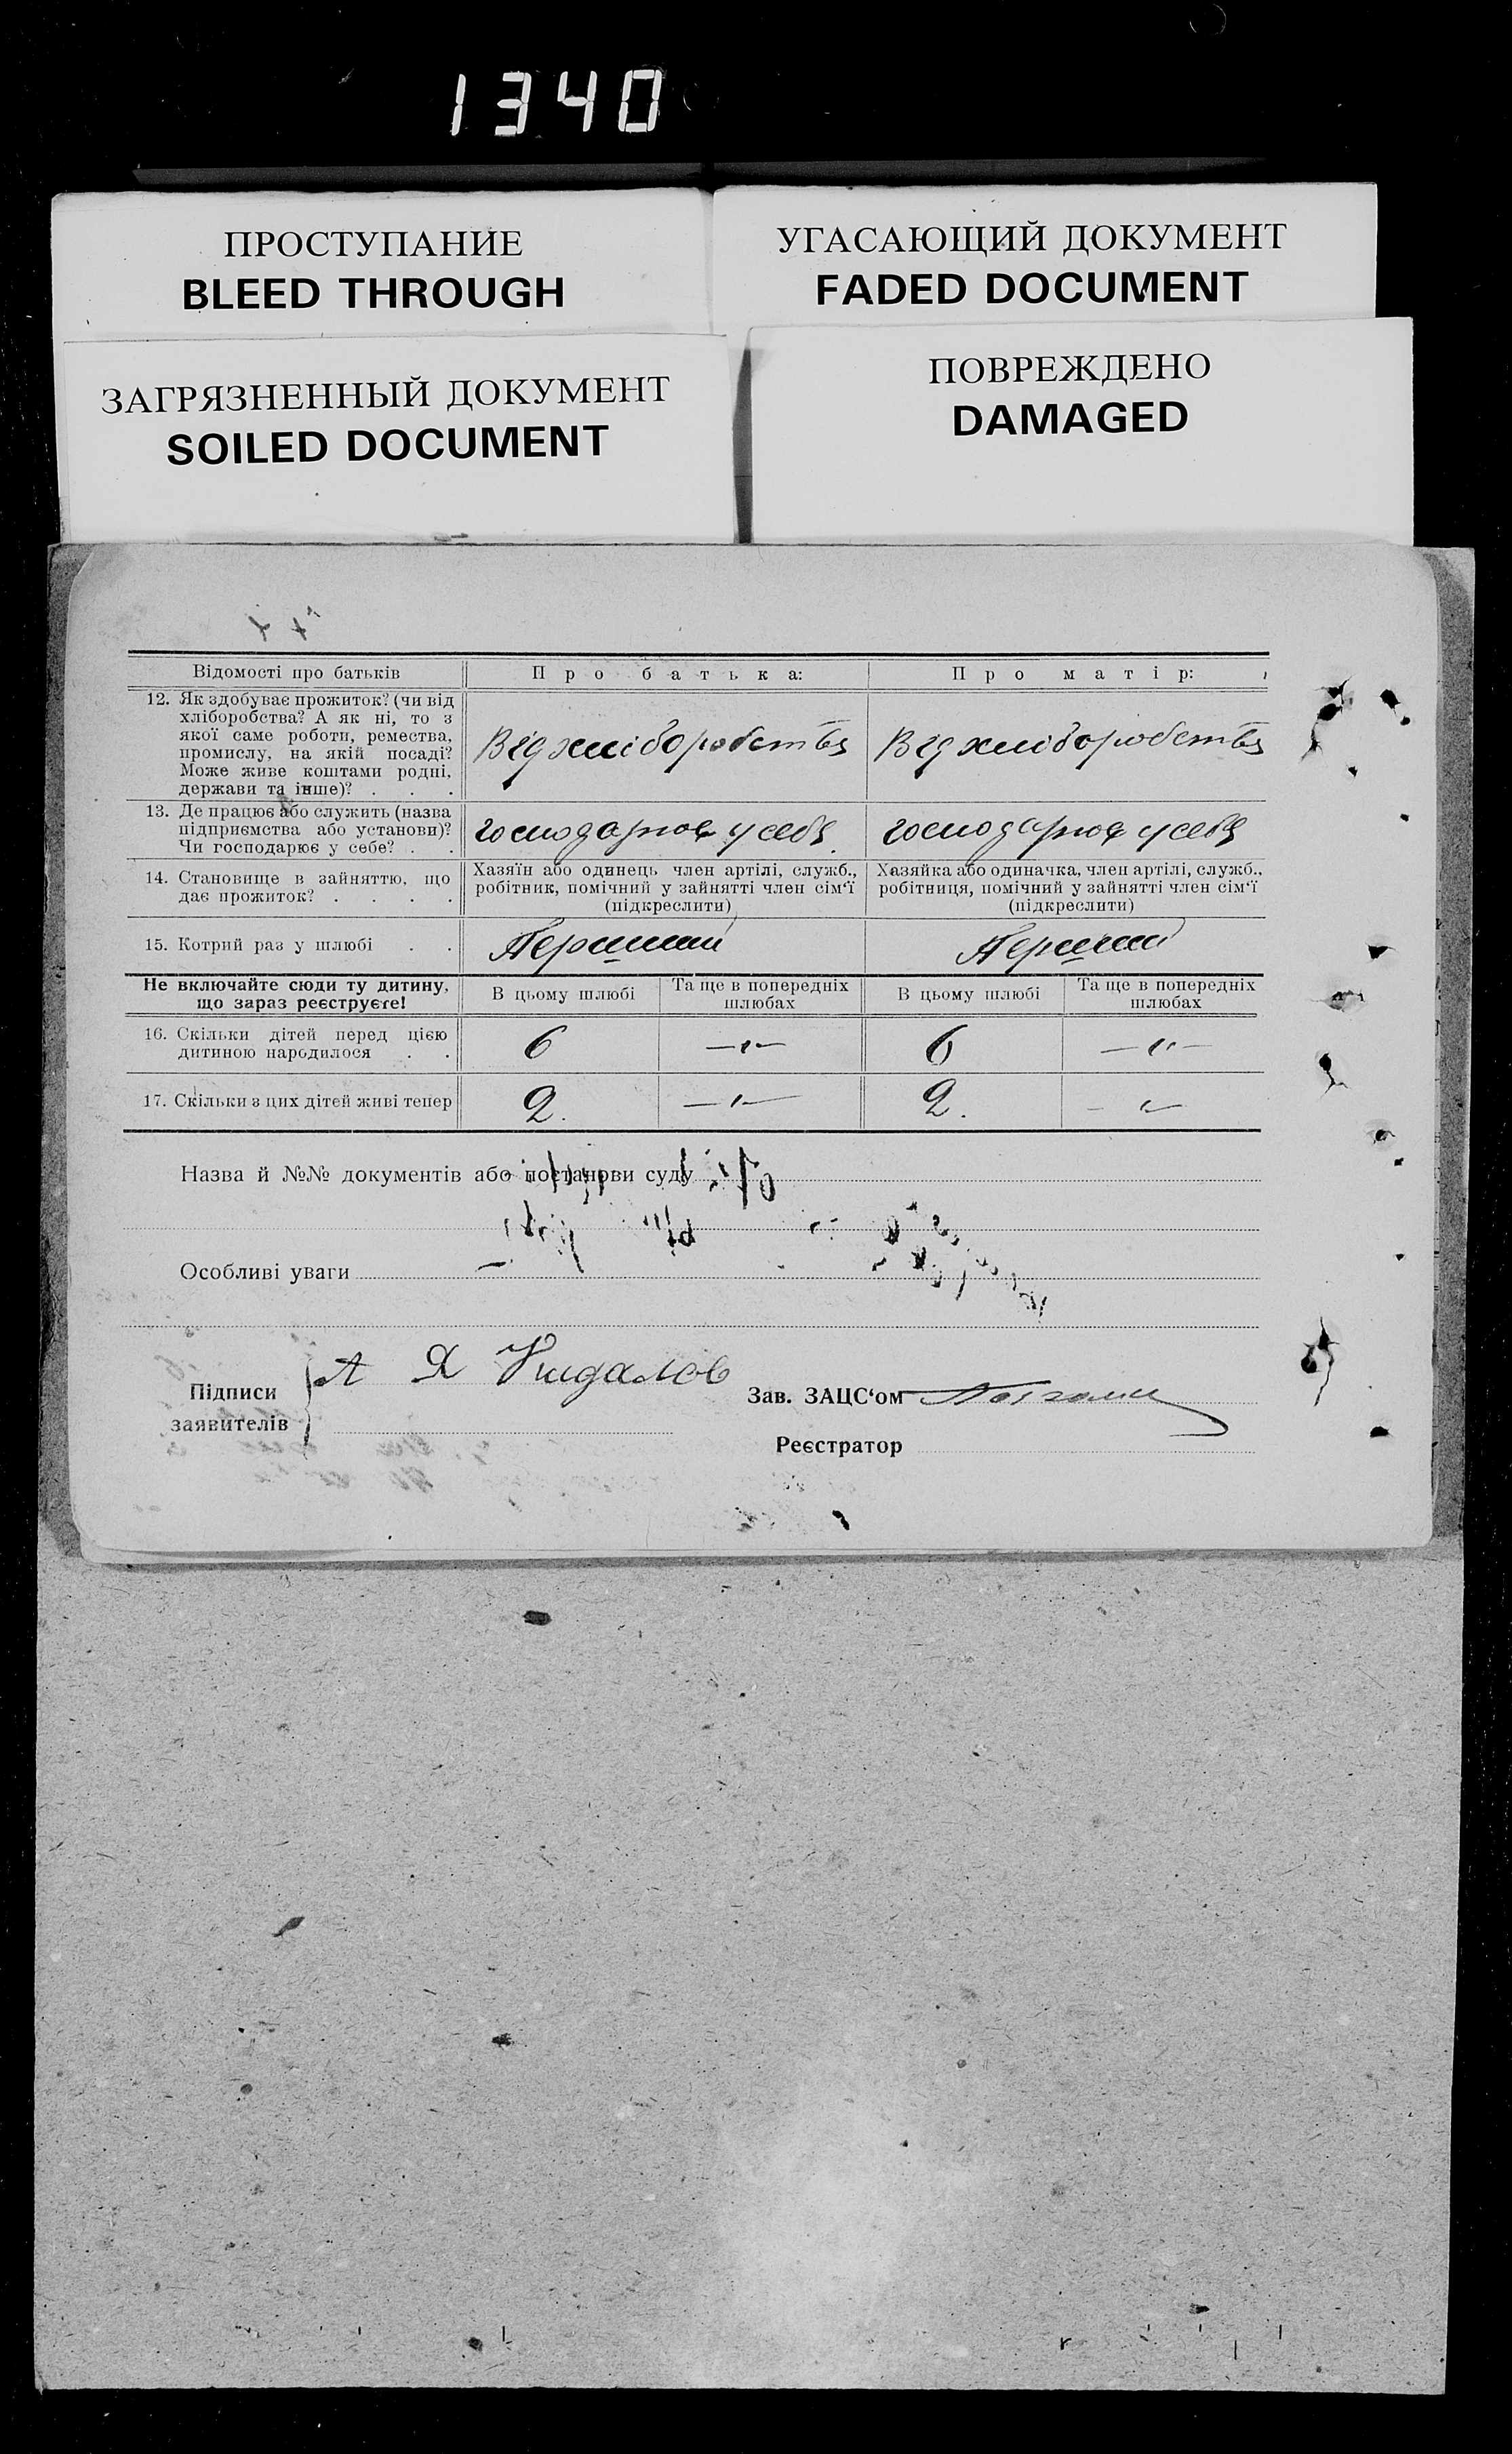 1340
ПРОСТУПАНИЕ
BLEED THROUGH
УГАСАЮЩИЙ ДОКУМЕНТ
FADED DOCUMENT
ЗАГРЯЗНЕННЫЙ ДОКУМЕНТ
SOILED DOCUMENT
ПОВРЕЖДЕНО
DAMAGED
Відомості про батьків
Про батька:
Про матір:
12. Як здобуває прожиток? (чи від
хліборобства? А як ні, то з
якої саме роботи, ремества,
промислу, на якій посаді?
Може живе коштами родні,
держави та інше)? . . .
Від хліборобства
Від хліборобства
13. Де працює або служить (назва
підприємства або установи)?
Чи господарює у себе? . .
господарює у себе
господарює у себе
14. Становище в зайняттю, що
дає прожиток? . . . .
Хазяїн або одинець член артілі, служб.,
робітник, помічний у зайнятті член сім‘ї
(підкреслити)
Хазяйка або одиначка, член артілі, служб.,
робітниця, помічний у зайнятті член сім‘ї
(підкреслити)
15. Котрий раз у шлюбі . .
Перший
Перший
Не включайте сюди ту дитину,
що зараз реєструєте!
В цьому шлюбі
Та ще в попередніх
шлюбах
В цьому шлюбі
Та ще в попередніх
шлюбах
16. Скільки дітей перед цією
дитиною народилося . .
6
—„—
6
—„—
17. Скільки з цих дітей живі тепер
2.
—„—
2.
—„—
Назва й №№ документів або постанови суду
Особливі уваги
Підписи
заявителів
А Я Кидалов
Зав. ЗАЦС‘ом
Реєстратор